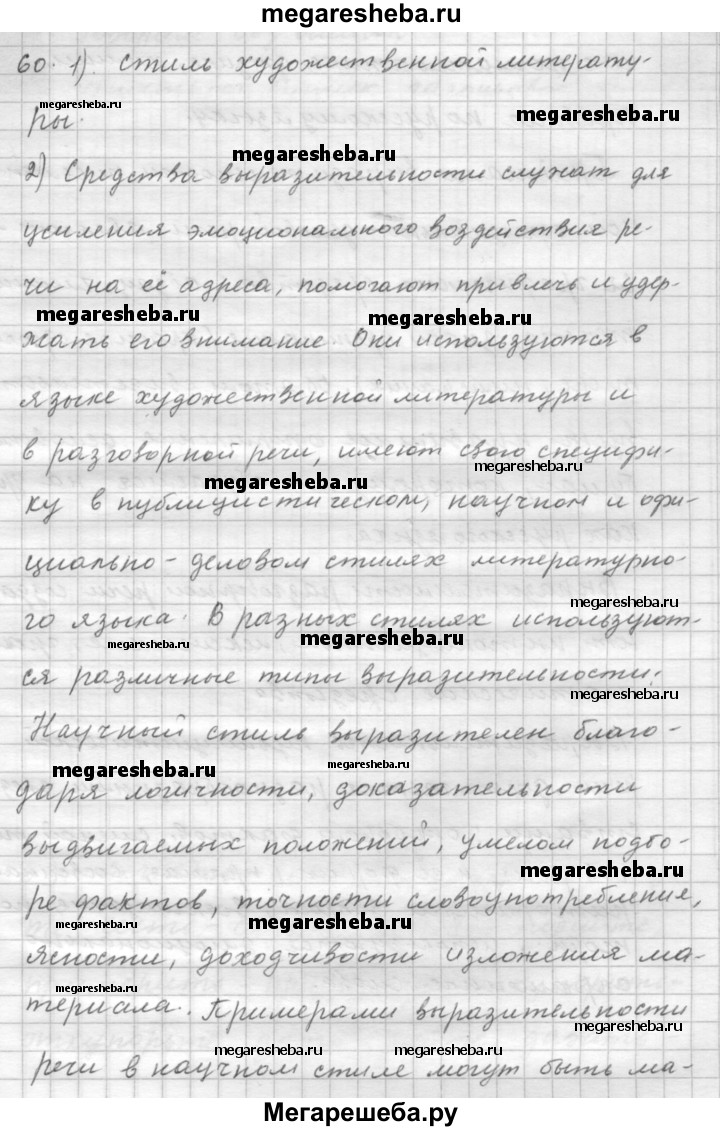 megaresheba.ru
60. 1). Стиль художественной литерату-
megaresheba.ru
ры.
megaresheba.ru
megaresheba.ru
2) Средства выразительности служат для
усиления эмоционального воздействия ре-
чи на её адреса, помогают привлечь и удер-
megaresheba.ru
megaresheba.ru
жать его внимание. Они используются в
языке художественной литературы и
в разговорной речи, имеют свою специфи-
megaresheba.ru
megaresheba.ru
ку в публицистическом, научном и офи-
циально-деловом стилях литературно-
megaresheba.ru
го языка. В разных стилях используют-
megaresheba.ru
megaresheba.ru
ся различные типы выразительности.
megaresheba.ru
Научный стиль выразителен благо-
megaresheba.ru
даря логичности, доказательности
выдвигаемых положений, умелом подбо-
megaresheba.ru
ре фактов, точности словоупотребление,
megaresheba.ru
ясности, доходчивости изложения ма-
териала. Примерами выразительности
megaresheba.ru
megaresheba.ru megaresheba.ru
речи в научном стиле могут быть ма-
Мегарешеба.ру